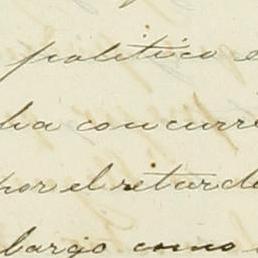 politico e
ha concurre
por el retardo
bargo como